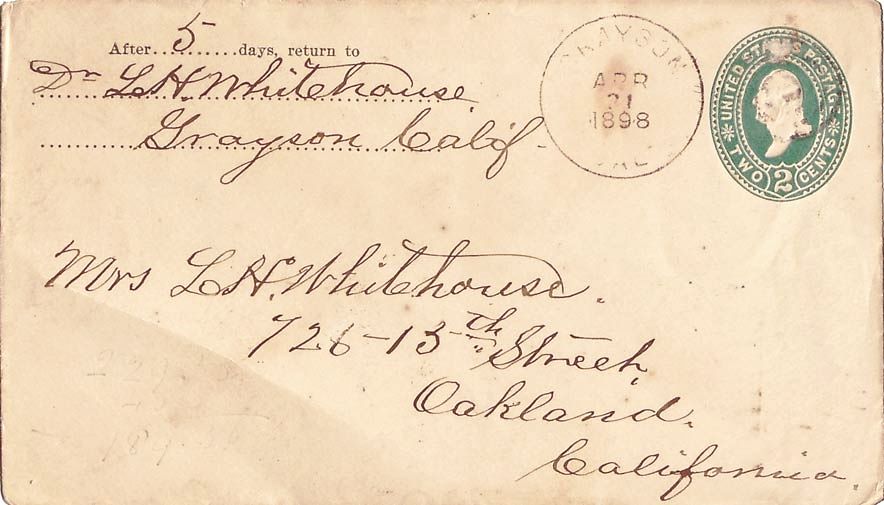 After 5 days, return to
Dr L.H. Whitehouse
Grayson Calif.
GRAYSON
APR
21
1898
CAL
UNITED STATES POSTAGE
TWO 2 CENTS
Mrs L.H. Whitehouse.
726-13th Street,
Oakland.
California.